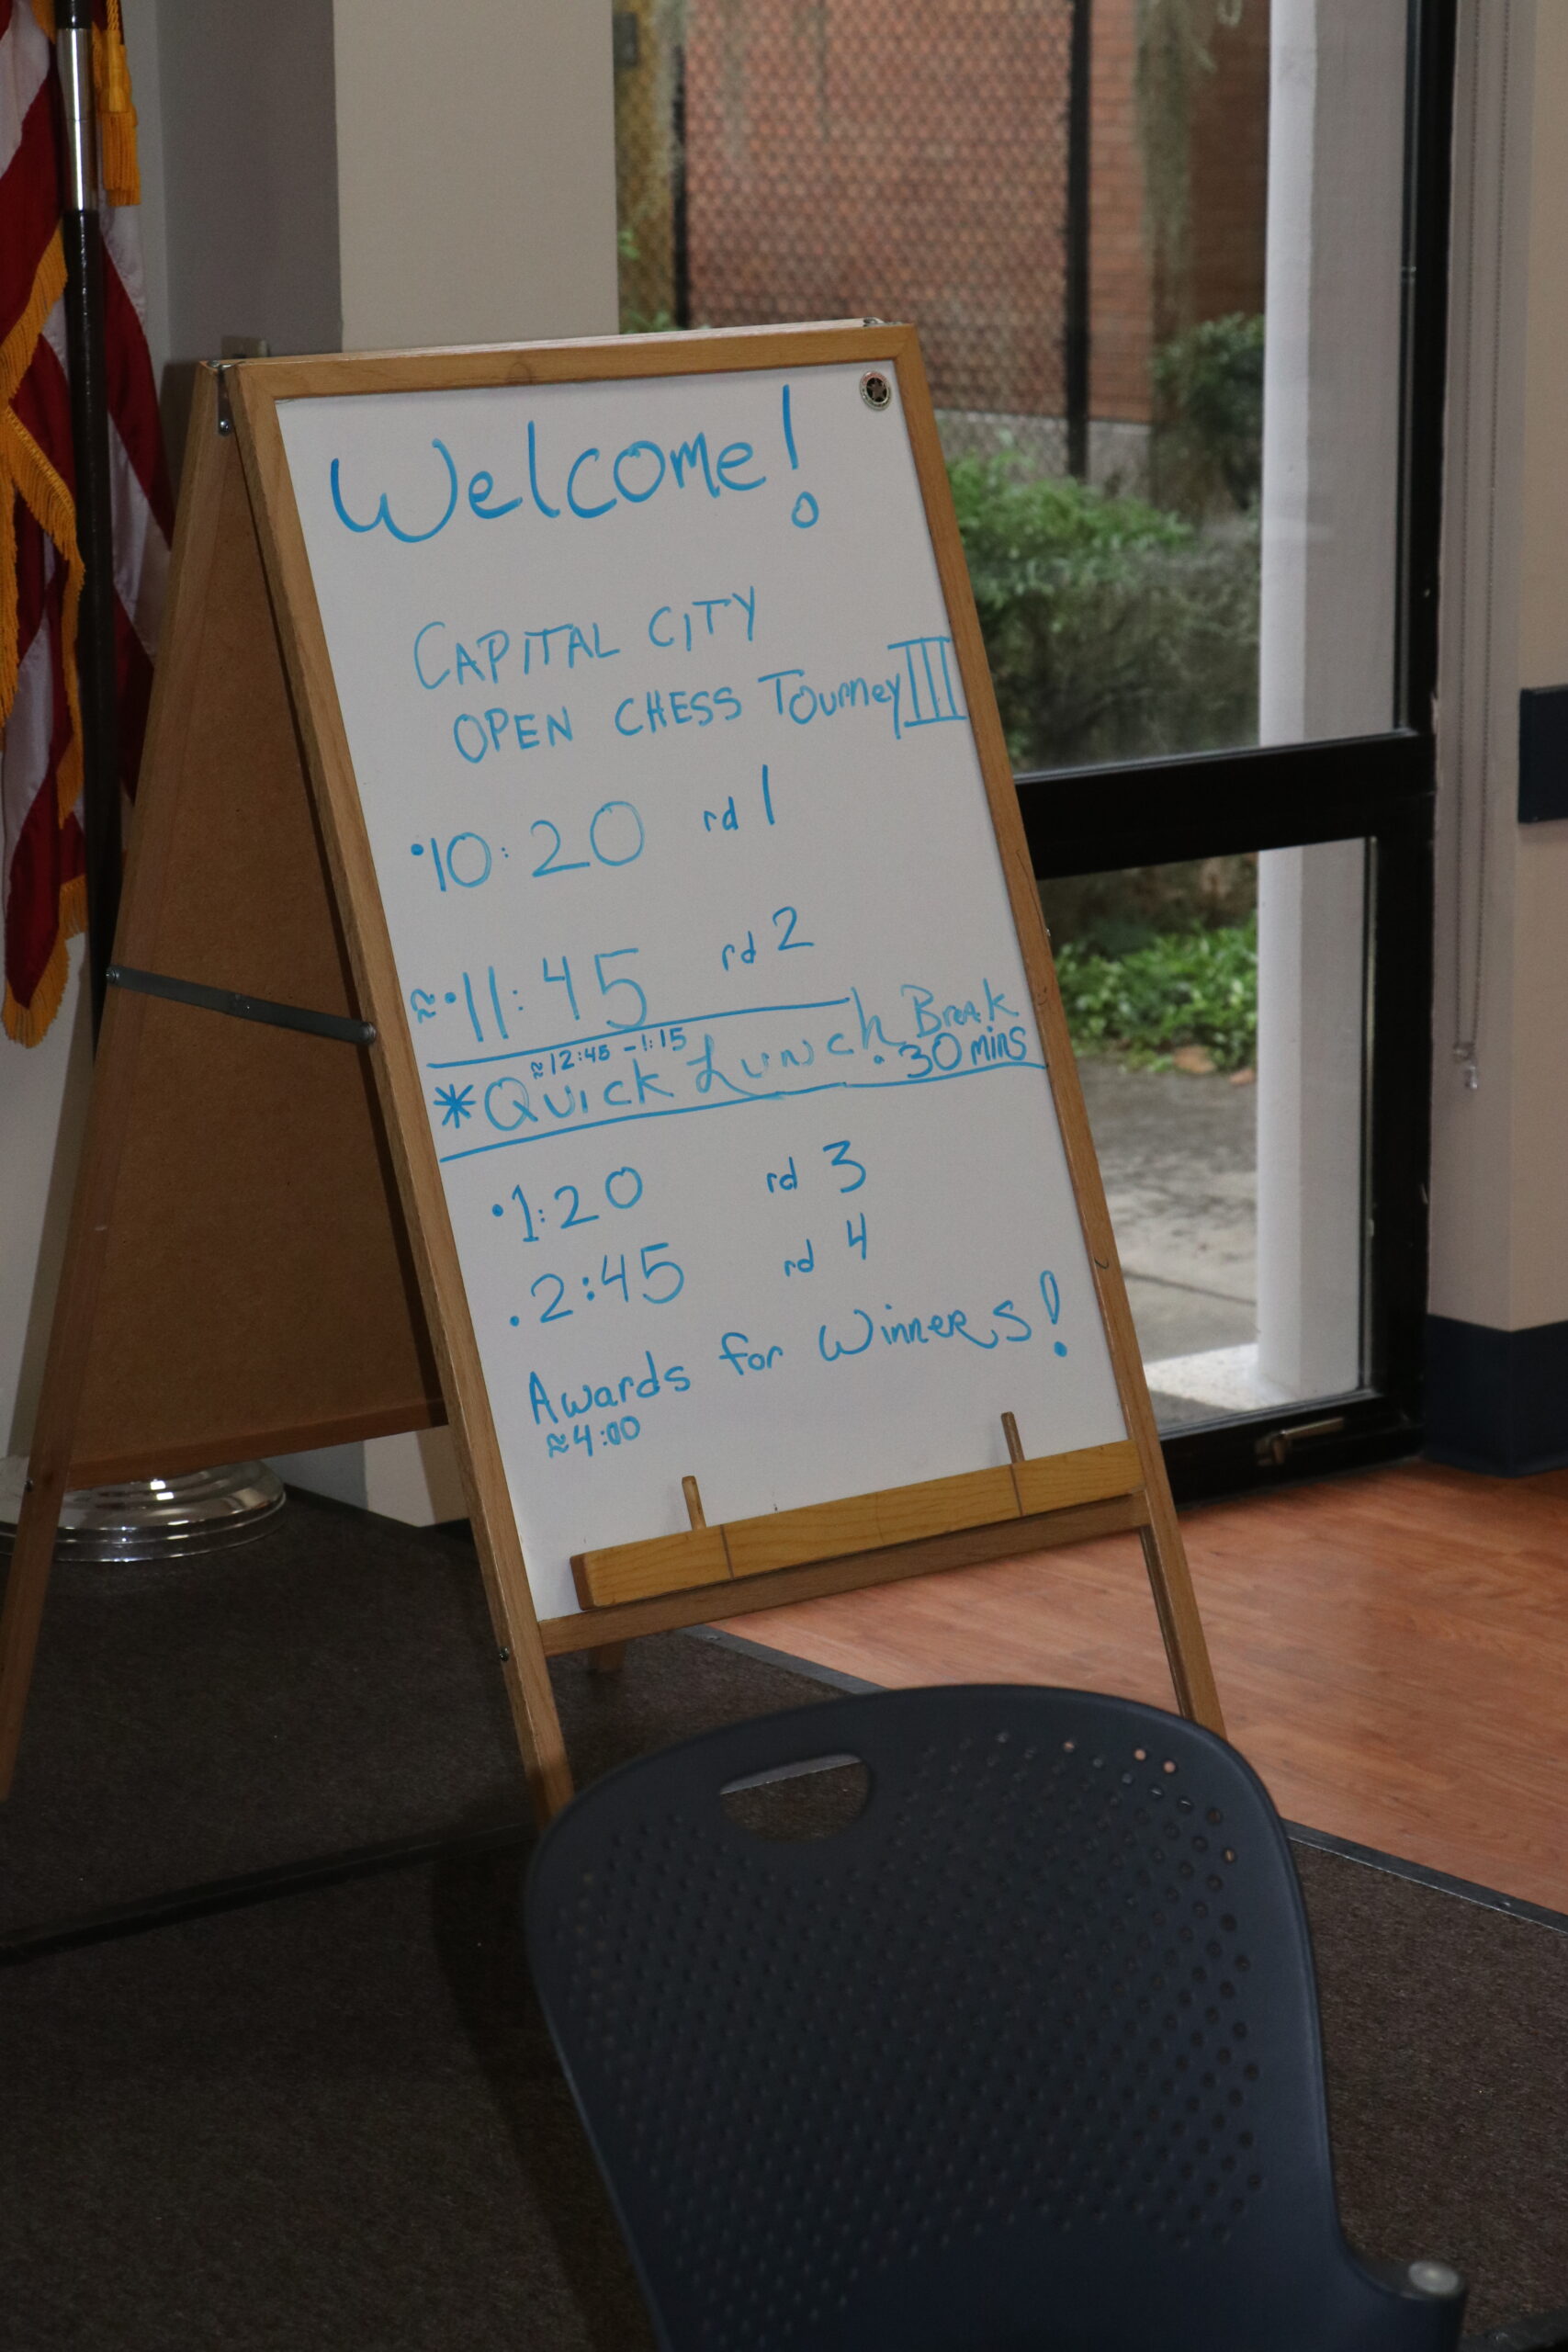 Welcome!
CAPITAL CITY
OPEN CHESS Tourney III
•10:20 rd 1
≈•11:45 rd 2
≈12:45-1:15
*Quick Lunch Break
•30 mins
•1:20 rd 3
•2:45 rd 4
Awards for Winners!
≈4:00